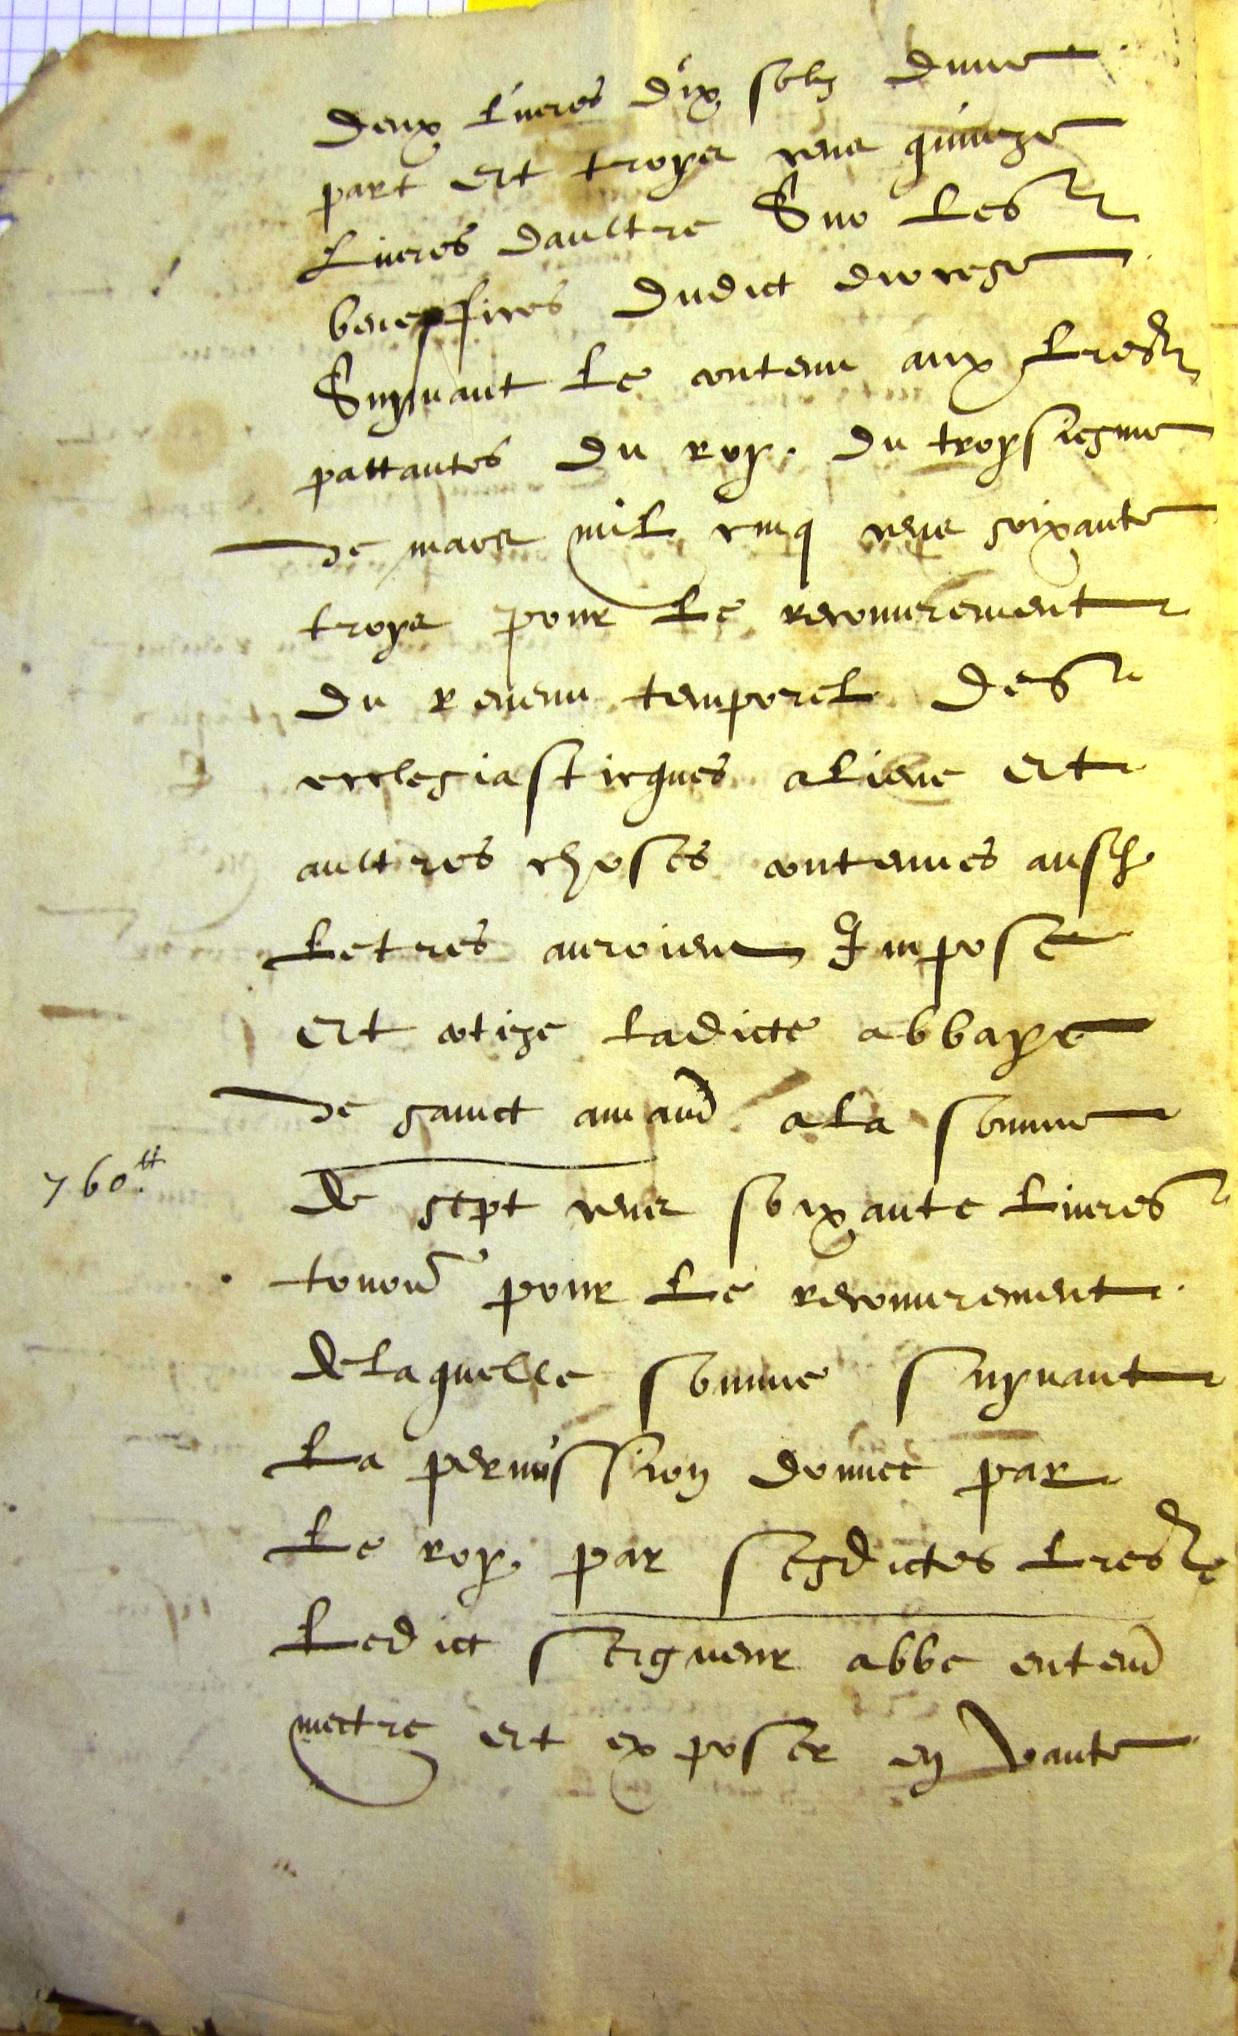 deux livres dix solz dune
part et troys cens quinze
livres daultre Sur les
beneffices dudict diocese
Suyvant le contenu aux lres
pattantes du roy. du troysiesme
de mars mil cinq cens soixante
troys pour le recouvrement
du revenu temporel des
ecclesiasticques aliene et
aultres choses contenues ausd
letres auroient Impose
et cotize ladicte abbaye
de sainct amand a la somme
760tt
de sept cens soixante livres
tournoi pour le recouvrement
de laquelle somme suyvant
la permission donnee par
le roy. par sesdictes lres
ledict seigneur abbe entend
mectre et exposer en vante